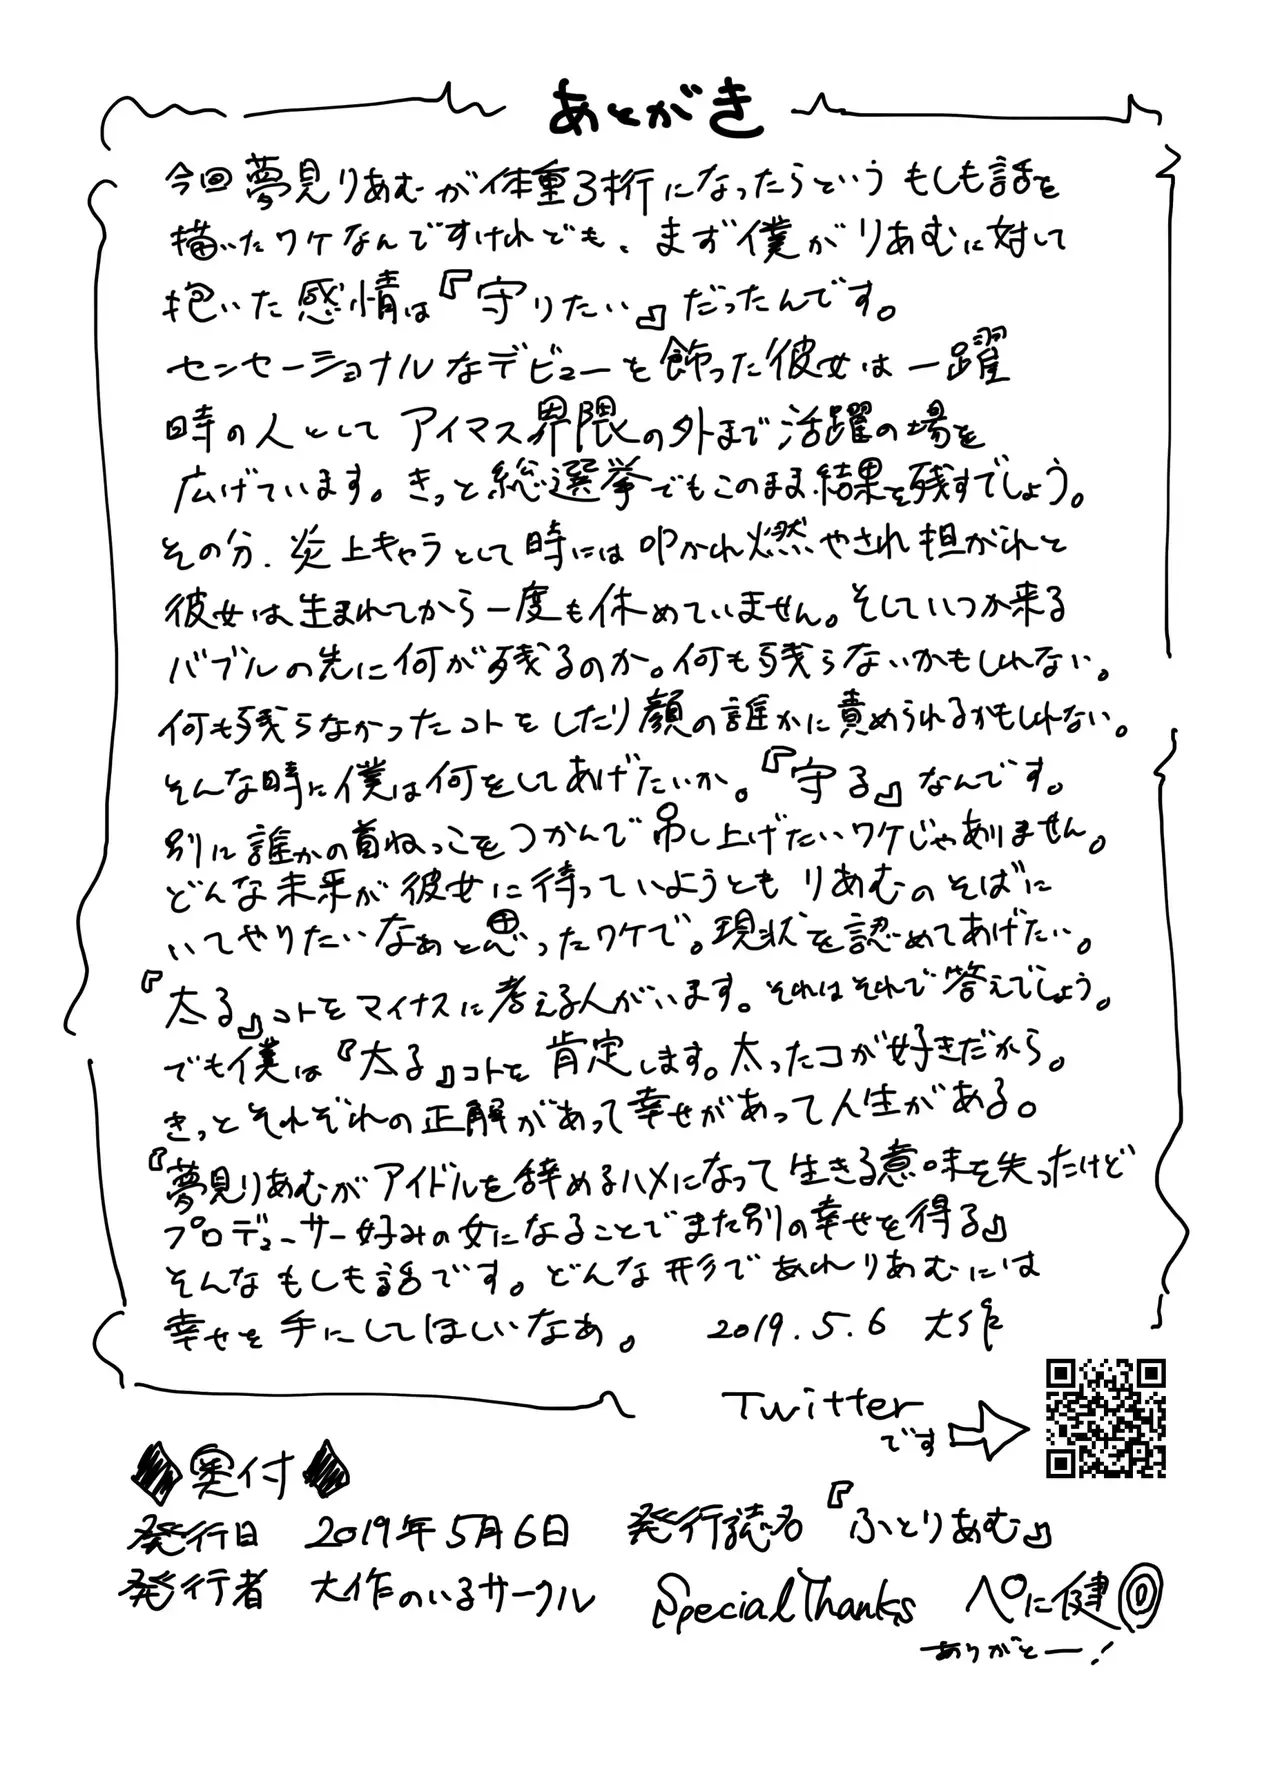 あとがき
今回夢見りあむが体重3桁になったらというもしも話を
描いたワケなんですけれども、まず僕がりあむに対して
抱いた感情は『守りたい』だったんです。
センセーショナルなデビューを飾った彼女は一躍
時の人としてアイマス界隈の外まで活躍の場を
広げています。きっと総選挙でもこのまま結果を残すでしょう。
その分、炎上キャラとして時には叩かれ燃やされ担がれと
彼女は生まれてから一度も休めていません。そしていつか来る
バブルの先に何が残るのか。何も残らないかもしれない。
何も残らなかったコトをしたり顔の誰かに責められるかもしれない。
そんな時に僕は何をしてあげたいか。『守る』なんです。
別に誰かの首ねっこをつかんで吊し上げたいワケじゃありません。
どんな未来が彼女に待っていようともりあむのそばに
いてやりたいなぁと思ったワケで。現状を認めてあげたい。
『太る』コトをマイナスに考える人がいます。それはそれで答えでしょう。
でも僕は『太る』コトを肯定します。太ったコが好きだから。
きっとそれぞれの正解があって幸せがあって人生がある。
『夢見りあむがアイドルを辞めるハメになって生きる意味を失ったけど
プロデューサー好みの女になることでまた別の幸せを得る』
そんなもしも話です。どんな形であれりあむには
幸せを手にしてほしいなあ。 2019.5.6 大作
Twitter
です
◆奥付◆
発行日 2019年5月6日 発行誌名『ふとりあむ』
発行者 大作のいるサークル Special Thanks ぺに健
ありがとー!